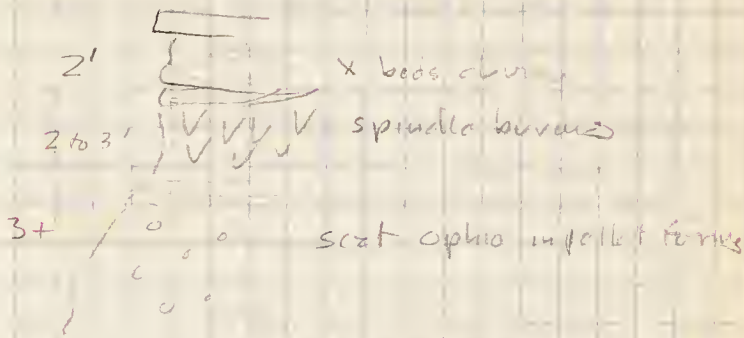 2' x beds
2 to 3' spindle burrows
3+ scat ophio in pellet forms